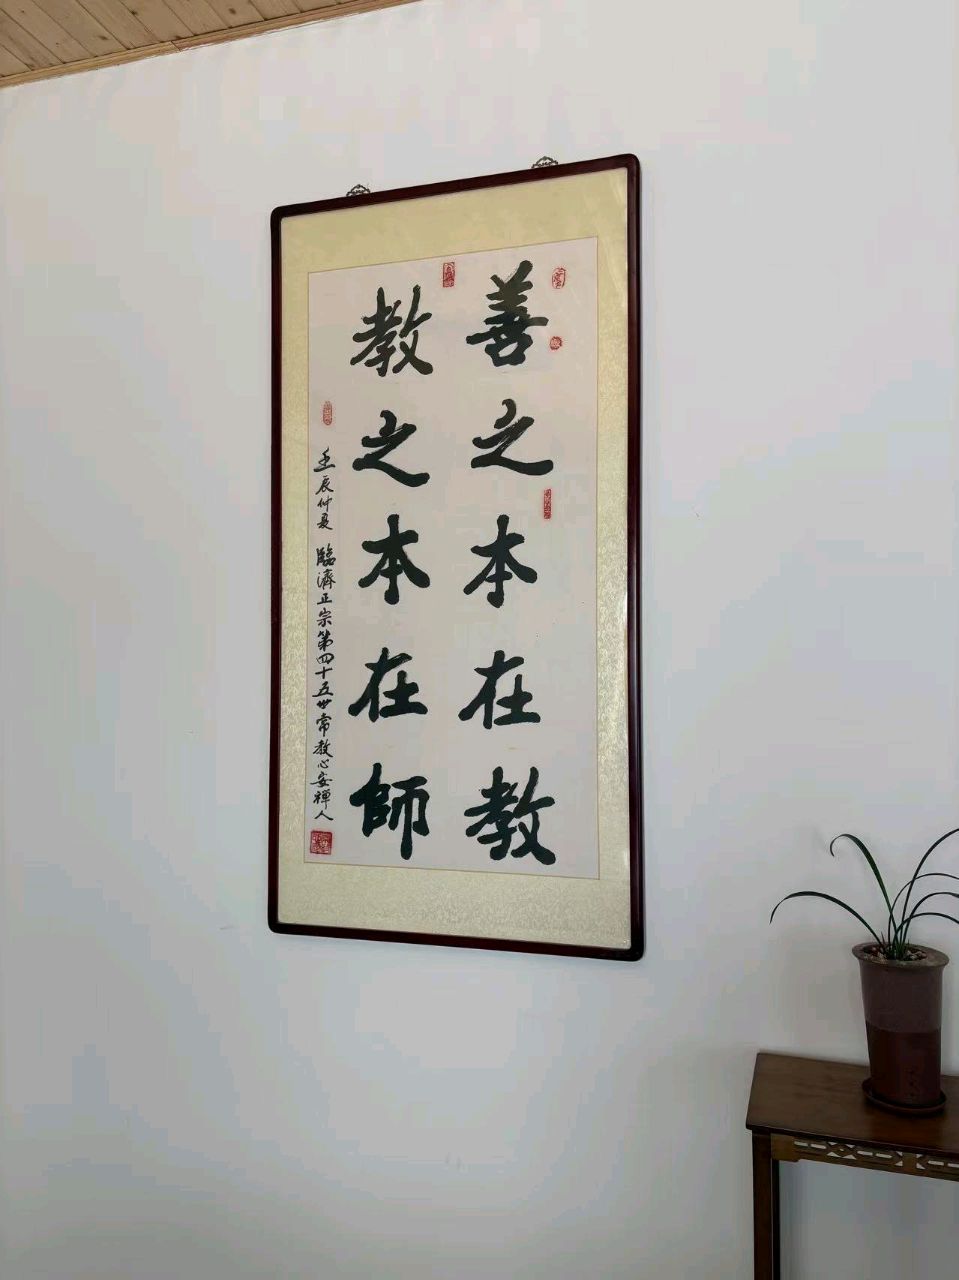 善之本在教
教之本在師
壬辰仲夏 臨濟正宗第四十五世常教心安禪人